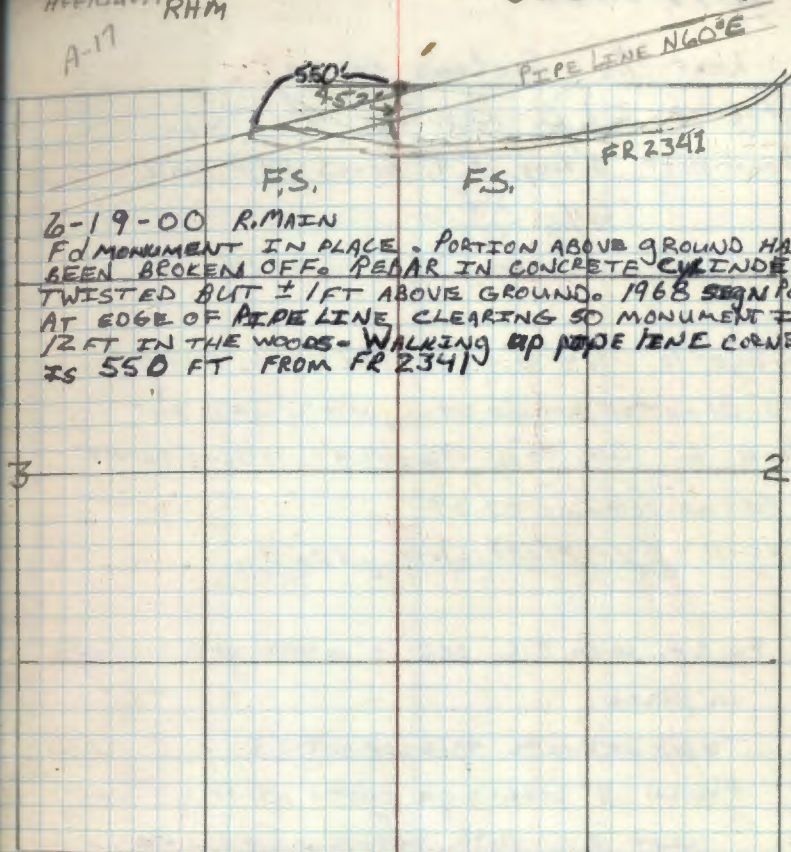 RHM
A-17
550'
452'
PIPE LINE N60°E
FR 2341
F.S. F.S.
6-19-00 R.MAIN
Fd MONUMENT IN PLACE. PORTION ABOVE gROUND HA
BEEN BROKEN OFF. REBAR IN CONCRETE CYLINDE
TWISTED BUT ± 1FT ABOVE GROUND. 1968 SIGN PO
AT EDGE OF PIPE LINE CLEARING SO MONUMENT I
12 FT IN THE WOODS- WALKING up pipe lENE CORNE
IS 550 FT FROM FR 2341
3 2